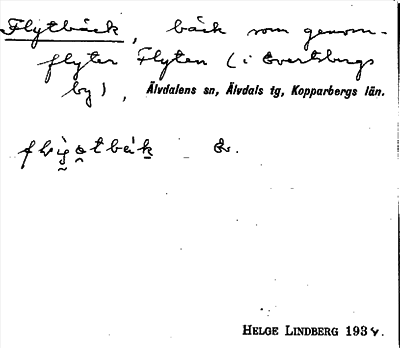 Flytbäck, bäck som genom-
flyter Flyten (i Evertsbergs
by), Älvdalens sn, Älvdals tg, Kopparbergs län.
HELGE LINDBERG 1934.